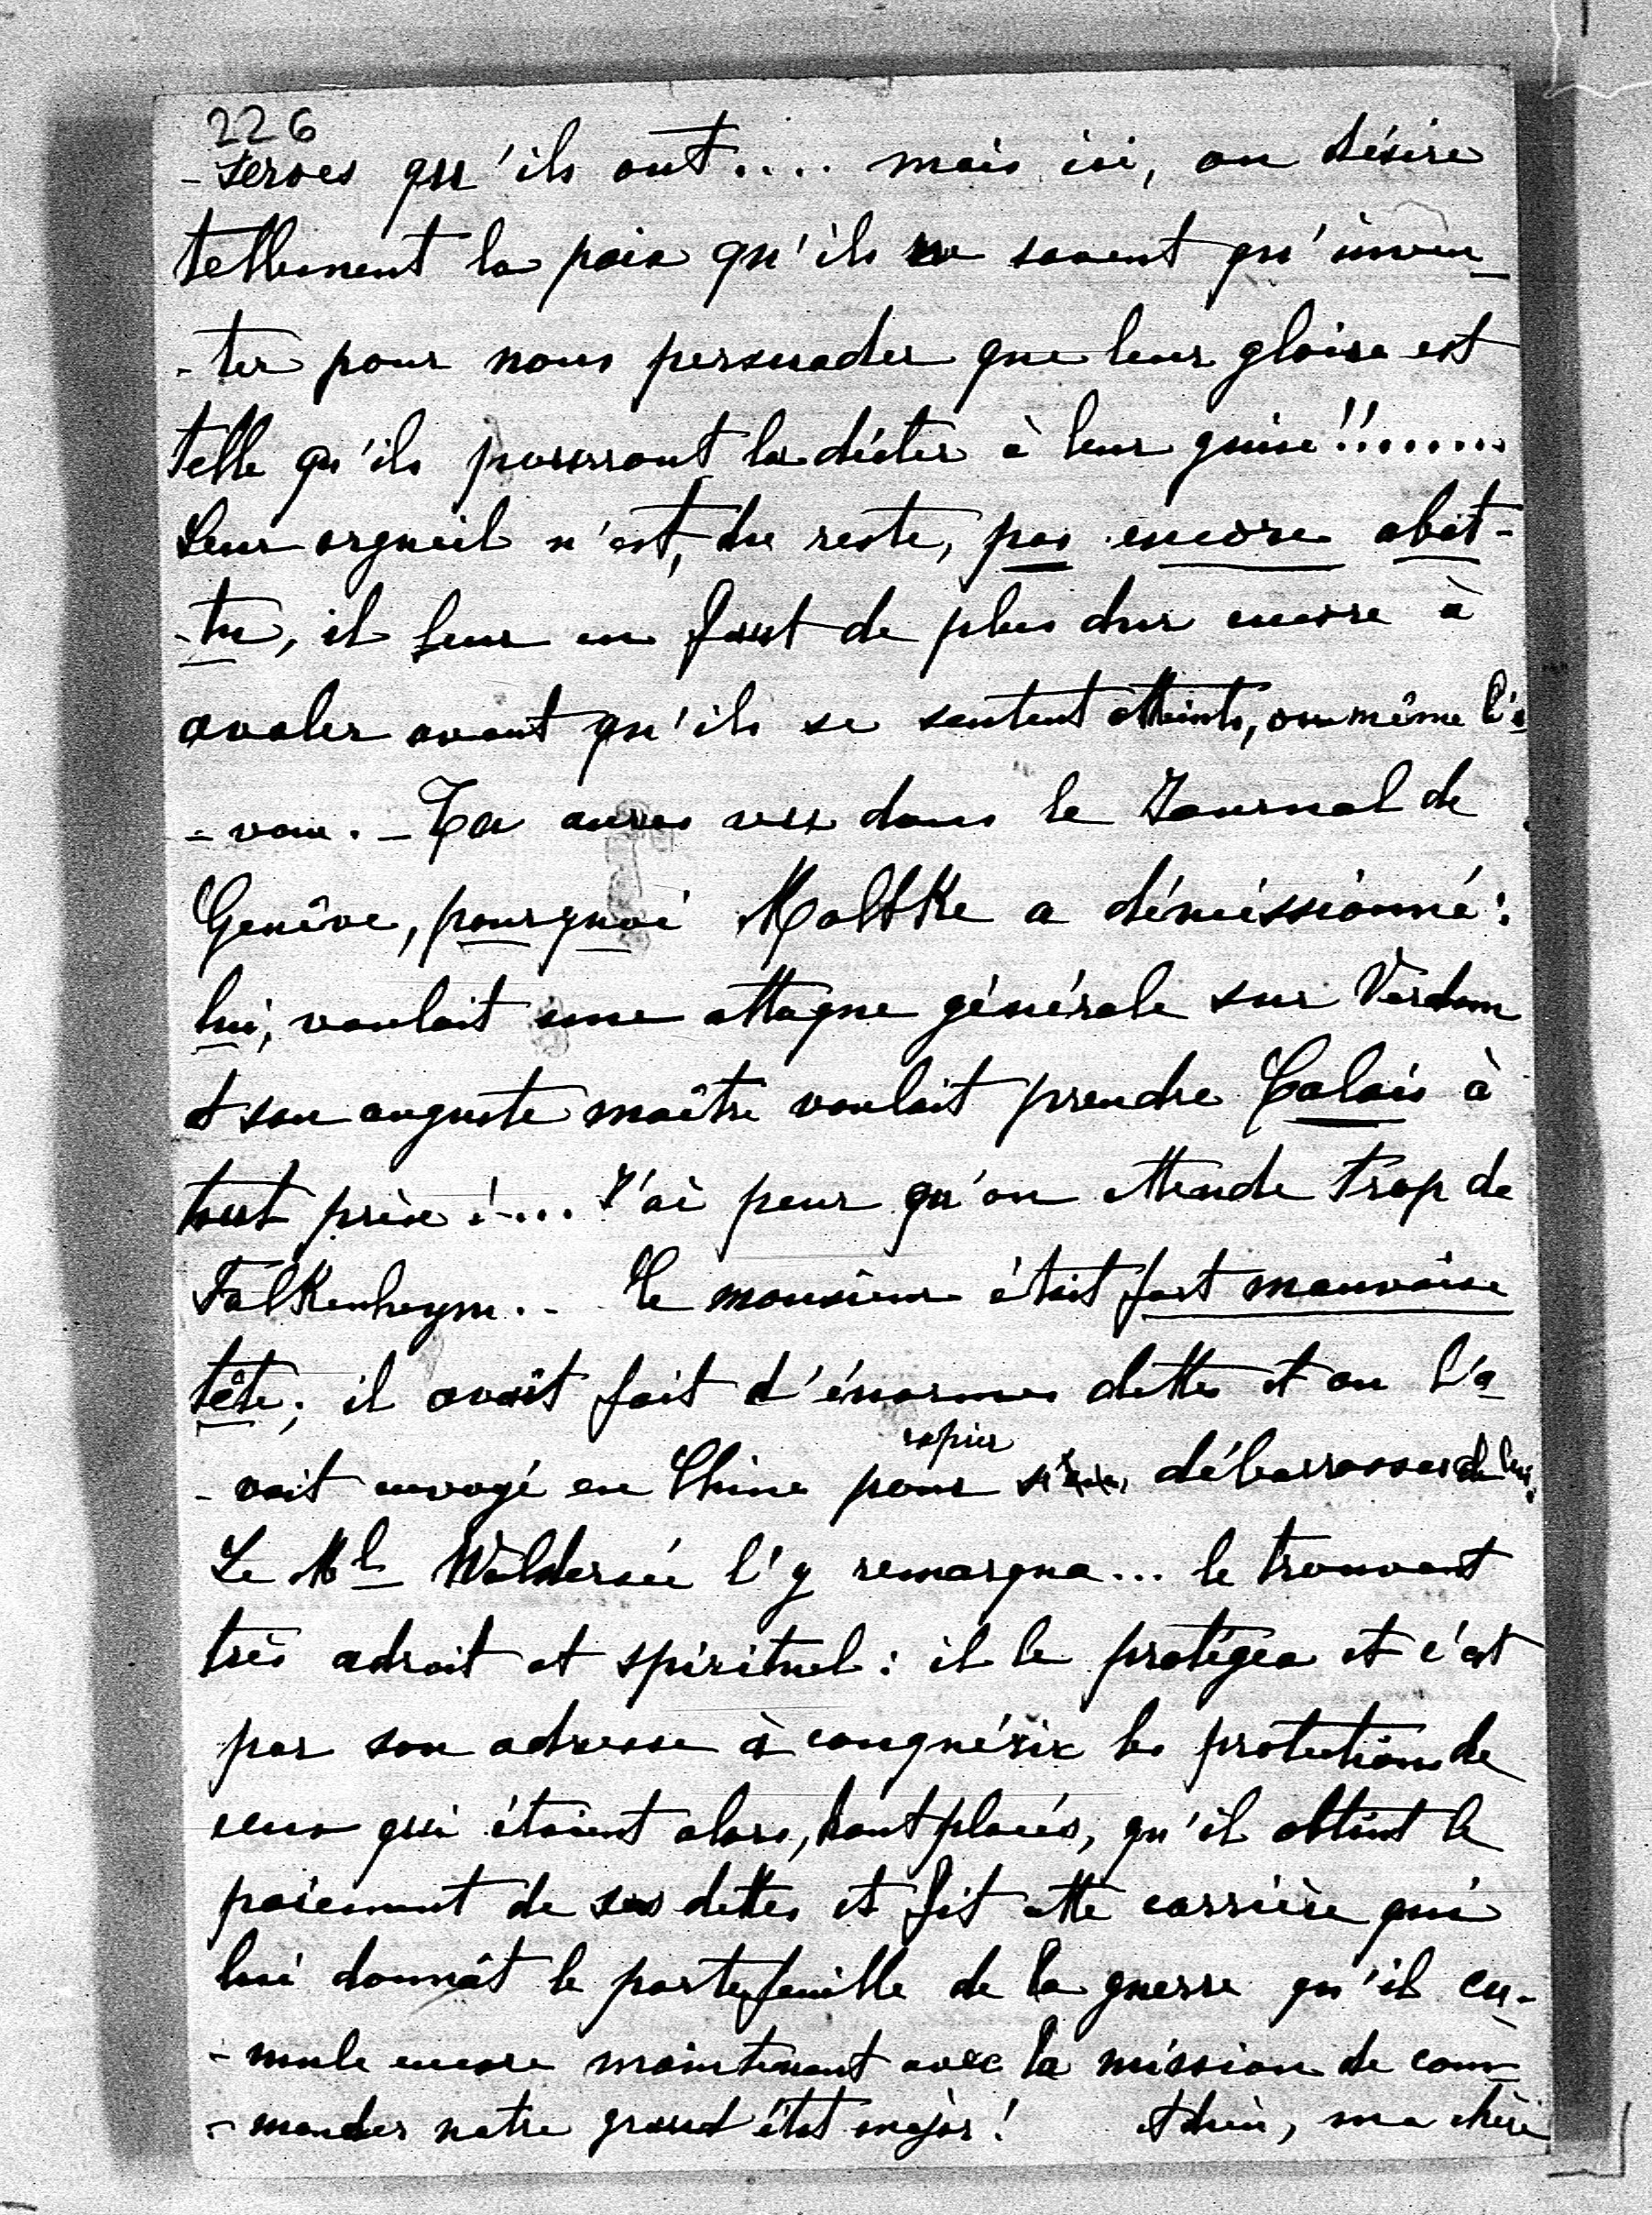 226
-serves qu'ils ont.... mais ici, on désire
tellement la paix qu'ils ne savent qu'inven-
-ter pour nous persuader que leur gloire est
telle qu'ils pourront la dicter à leur guise!!.......
Leur orgueil n'est, du reste, pas encore abat-
-tu, il leur en faut de plus dur encore à
avaler avant qu'ils se sentent atteints, ou même l'a-
-voue. - Tu auras vu dans le Journal de
Genève, pourquoi Moltke a démissionné:
lui, voulait une attaque générale sur Verdun
et son auguste maître voulait prendre Calais à
tout prix!... J'ai peur qu'on attende trop de
Falkenheym.. Ce monsieur était fort mauvaise
tête; il avait fait d'énormes dettes et on l'a-
-vait envoyé en Chine pour débarrasser de lui.
Le Ml Waldersée l'y remarqua... le trouvant
très adroit et spirituel: il le protégea et c'est
par son adresse à conquérir les protections de
ceux qui étaient alors, haut placés, qu'il obtint le
paiement de ses dettes et fit cette carrière qui
lui donnât le portefeuille de la guerre qu'il cu-
-mule encore maintenant avec la mission de com-
-mander notre grand état major! Adieu, ma chère